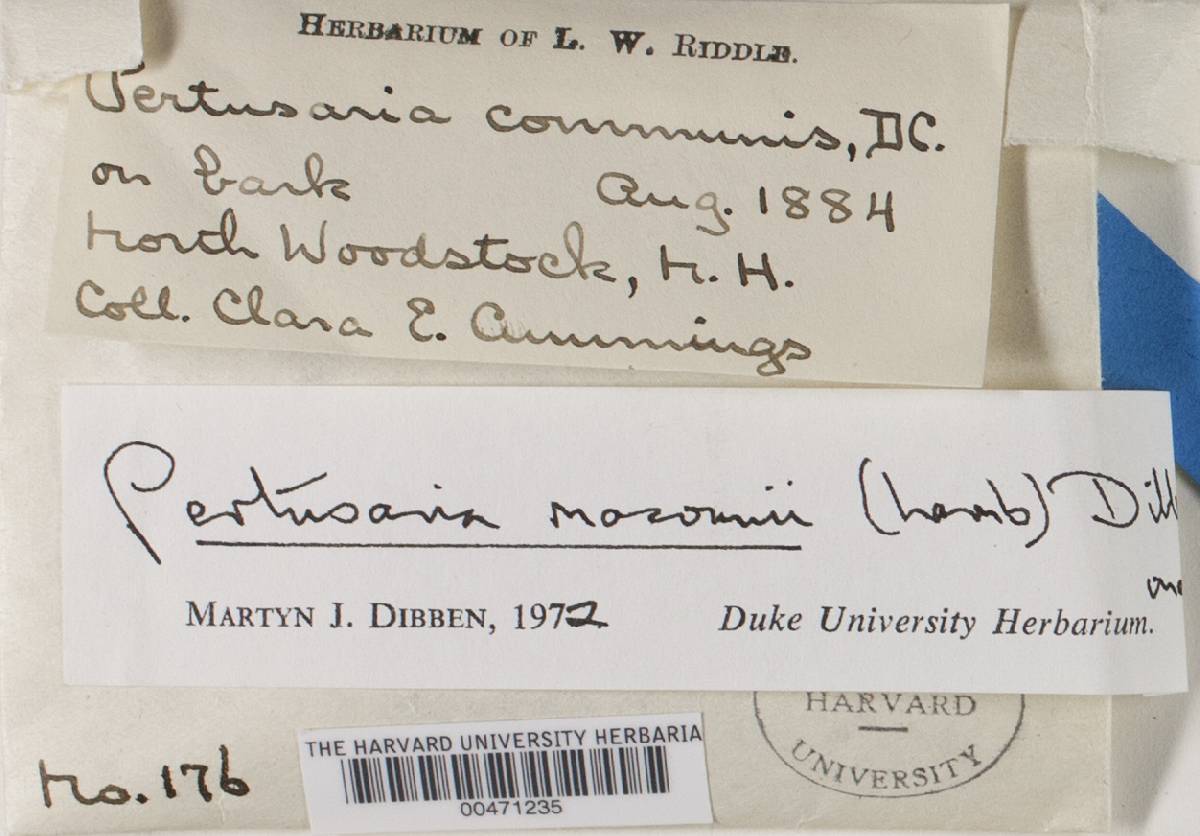 HERBARIUM OF L. W. RIDDLE.
Pertusaria communis, DC.
on bark Aug. 1884
North Woodstock, N. H.
Coll. Clara E. Cummings
Pertusaria macounii (Lamb) Dibb
MARTYN J. DIBBEN, 1972 Duke University Herbarium.
HARVARD
UNIVERSITY
No. 176
THE HARVARD UNIVERSITY HERBARIA
00471235